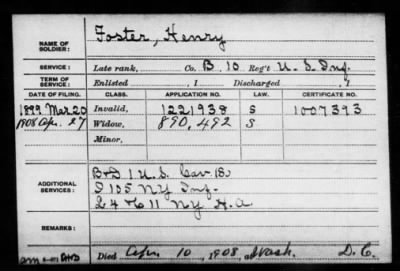 NAME OF SOLDIER: Foster, Henry
SERVICE: Late rank, Co. B 10 Reg't U. S. Inf.
TERM OF SERVICE: Enlisted , 1 Discharged , 1
DATE OF FILING. CLASS. APPLICATION NO. LAW. CERTIFICATE NO.
1899 Mar 20 Invalid, 1221938 S 1007393
1908 Apr. 27 Widow, 890,492 S
Minor,
ADDITIONAL SERVICES: B & D 1 U. S. Cav.
D 105 NY Inf.
11 NY H. A
REMARKS:
Died Apr. 10, 1908, Wash. D. C.